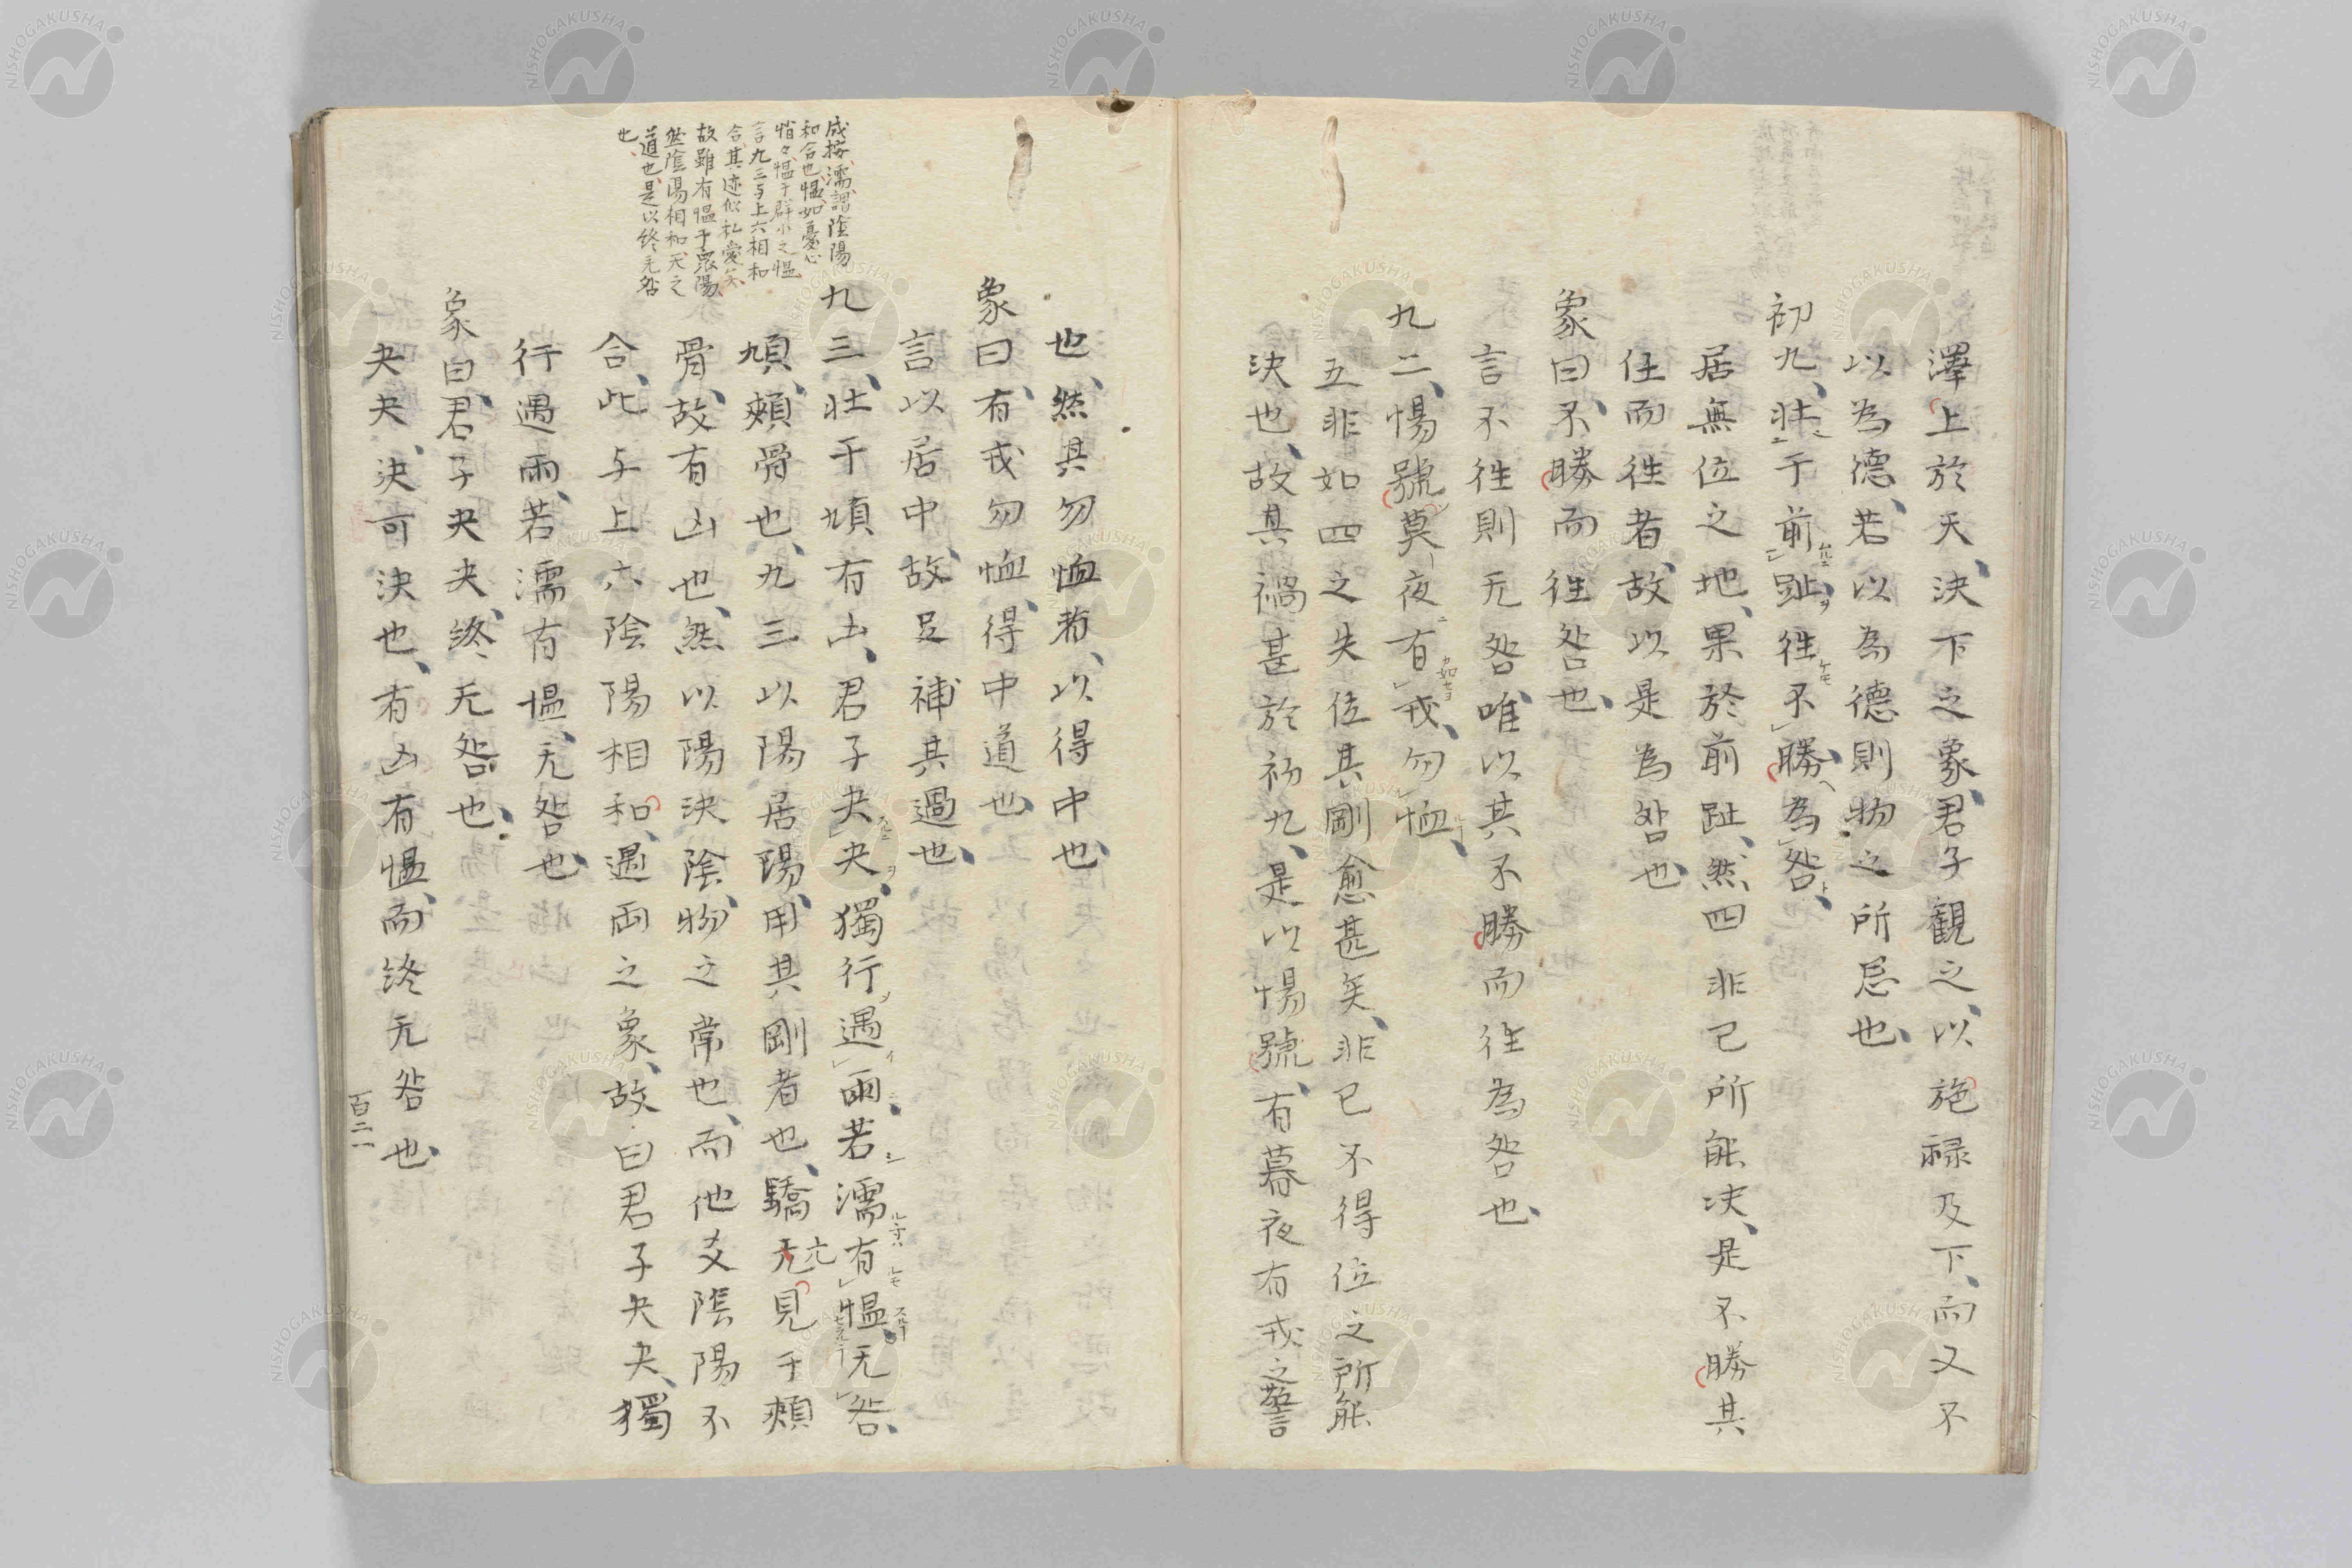 澤上於天、決下之象、君子観之、以施禄及下、而又不
以為德、若以為德則物之所忌也、
初九、壮于前趾、徃不勝、為咎、
居無位之地、果於前趾、然四非已所能决、是不勝其
任而徃者、故以是為咎也、
象曰、不勝而徃咎也、
言不徃則无咎、唯以其不勝而徃為咎也、
九二、惕號、莫夜有戎、勿恤、
五非如四之失位其剛愈甚矣、非已不得位之所能
決也、故其禍甚於初九、是以惕號、有暮夜有戎之警
也、然其勿恤者、以得中也、
象曰、有戎勿恤、得中道也、
言以居中、故足補其過也、
九三、壮于頄有凶、君子夬夬、獨行遇雨、若濡有愠、无咎、
頄、頰骨也、九三以陽居陽、用其剛者也、驕亢見于頰
骨、故有凶也、然以陽決陰、物之常也、而他爻陰陽不
合、此与上六陰陽相和、遇雨之象、故曰君子夬夬、獨
行遇雨、若濡有愠、无咎也、
象曰、君子夬夬、終无咎也、
夬夬、決可決也、有凶有愠、而終无咎也、
成按、濡謂陰陽
和合也、愠、如憂心
悄々、愠于群小之愠
言九三与上六相和
合、其迹似私愛矣、
故雖有愠于衆陽、
然陰陽相和、天之
道也、是以終无咎
也、
百二一